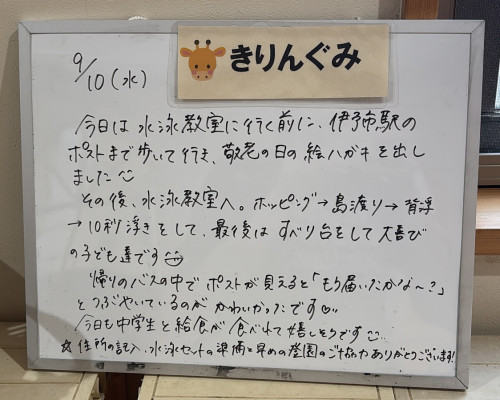 きりんぐみ
9/10(水)
今日は水泳教室に行く前に、伊予市駅の
ポストまで歩いて行き、敬老の日の絵ハガキを出し
ました
その後、水泳教室へ。ホッピング→島渡り→背浮
→10秒浮きをして、最後はすべり台をして大喜び
の子ども達です
帰りのバスの中でポストが見えると「もう届いたかな〜?」
とつぶやいているのがかわいかったです♡
今日も中学生と給食が食べれて嬉しそうです
☆住所の記入、水泳セットの準備と早めの登園のご協力ありがとうございます!